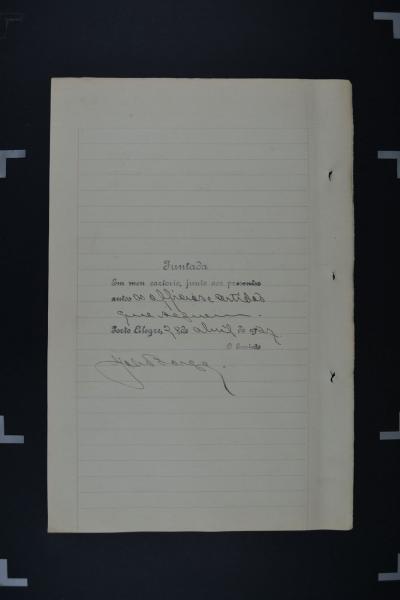 Juntada
Em meu cartorio, junto aos presentes
autos os officios e certidões
que seguem.
Porto Alegre, 28 de abril de 927
O Escrivão